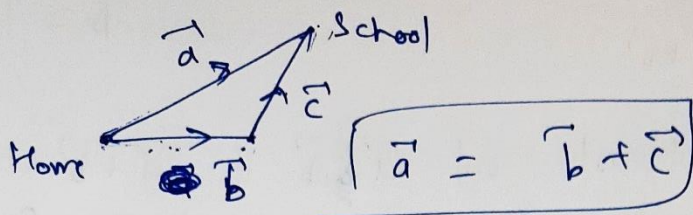 School
a⃗
c⃗
Home
b⃗
a⃗ = b⃗ + c⃗